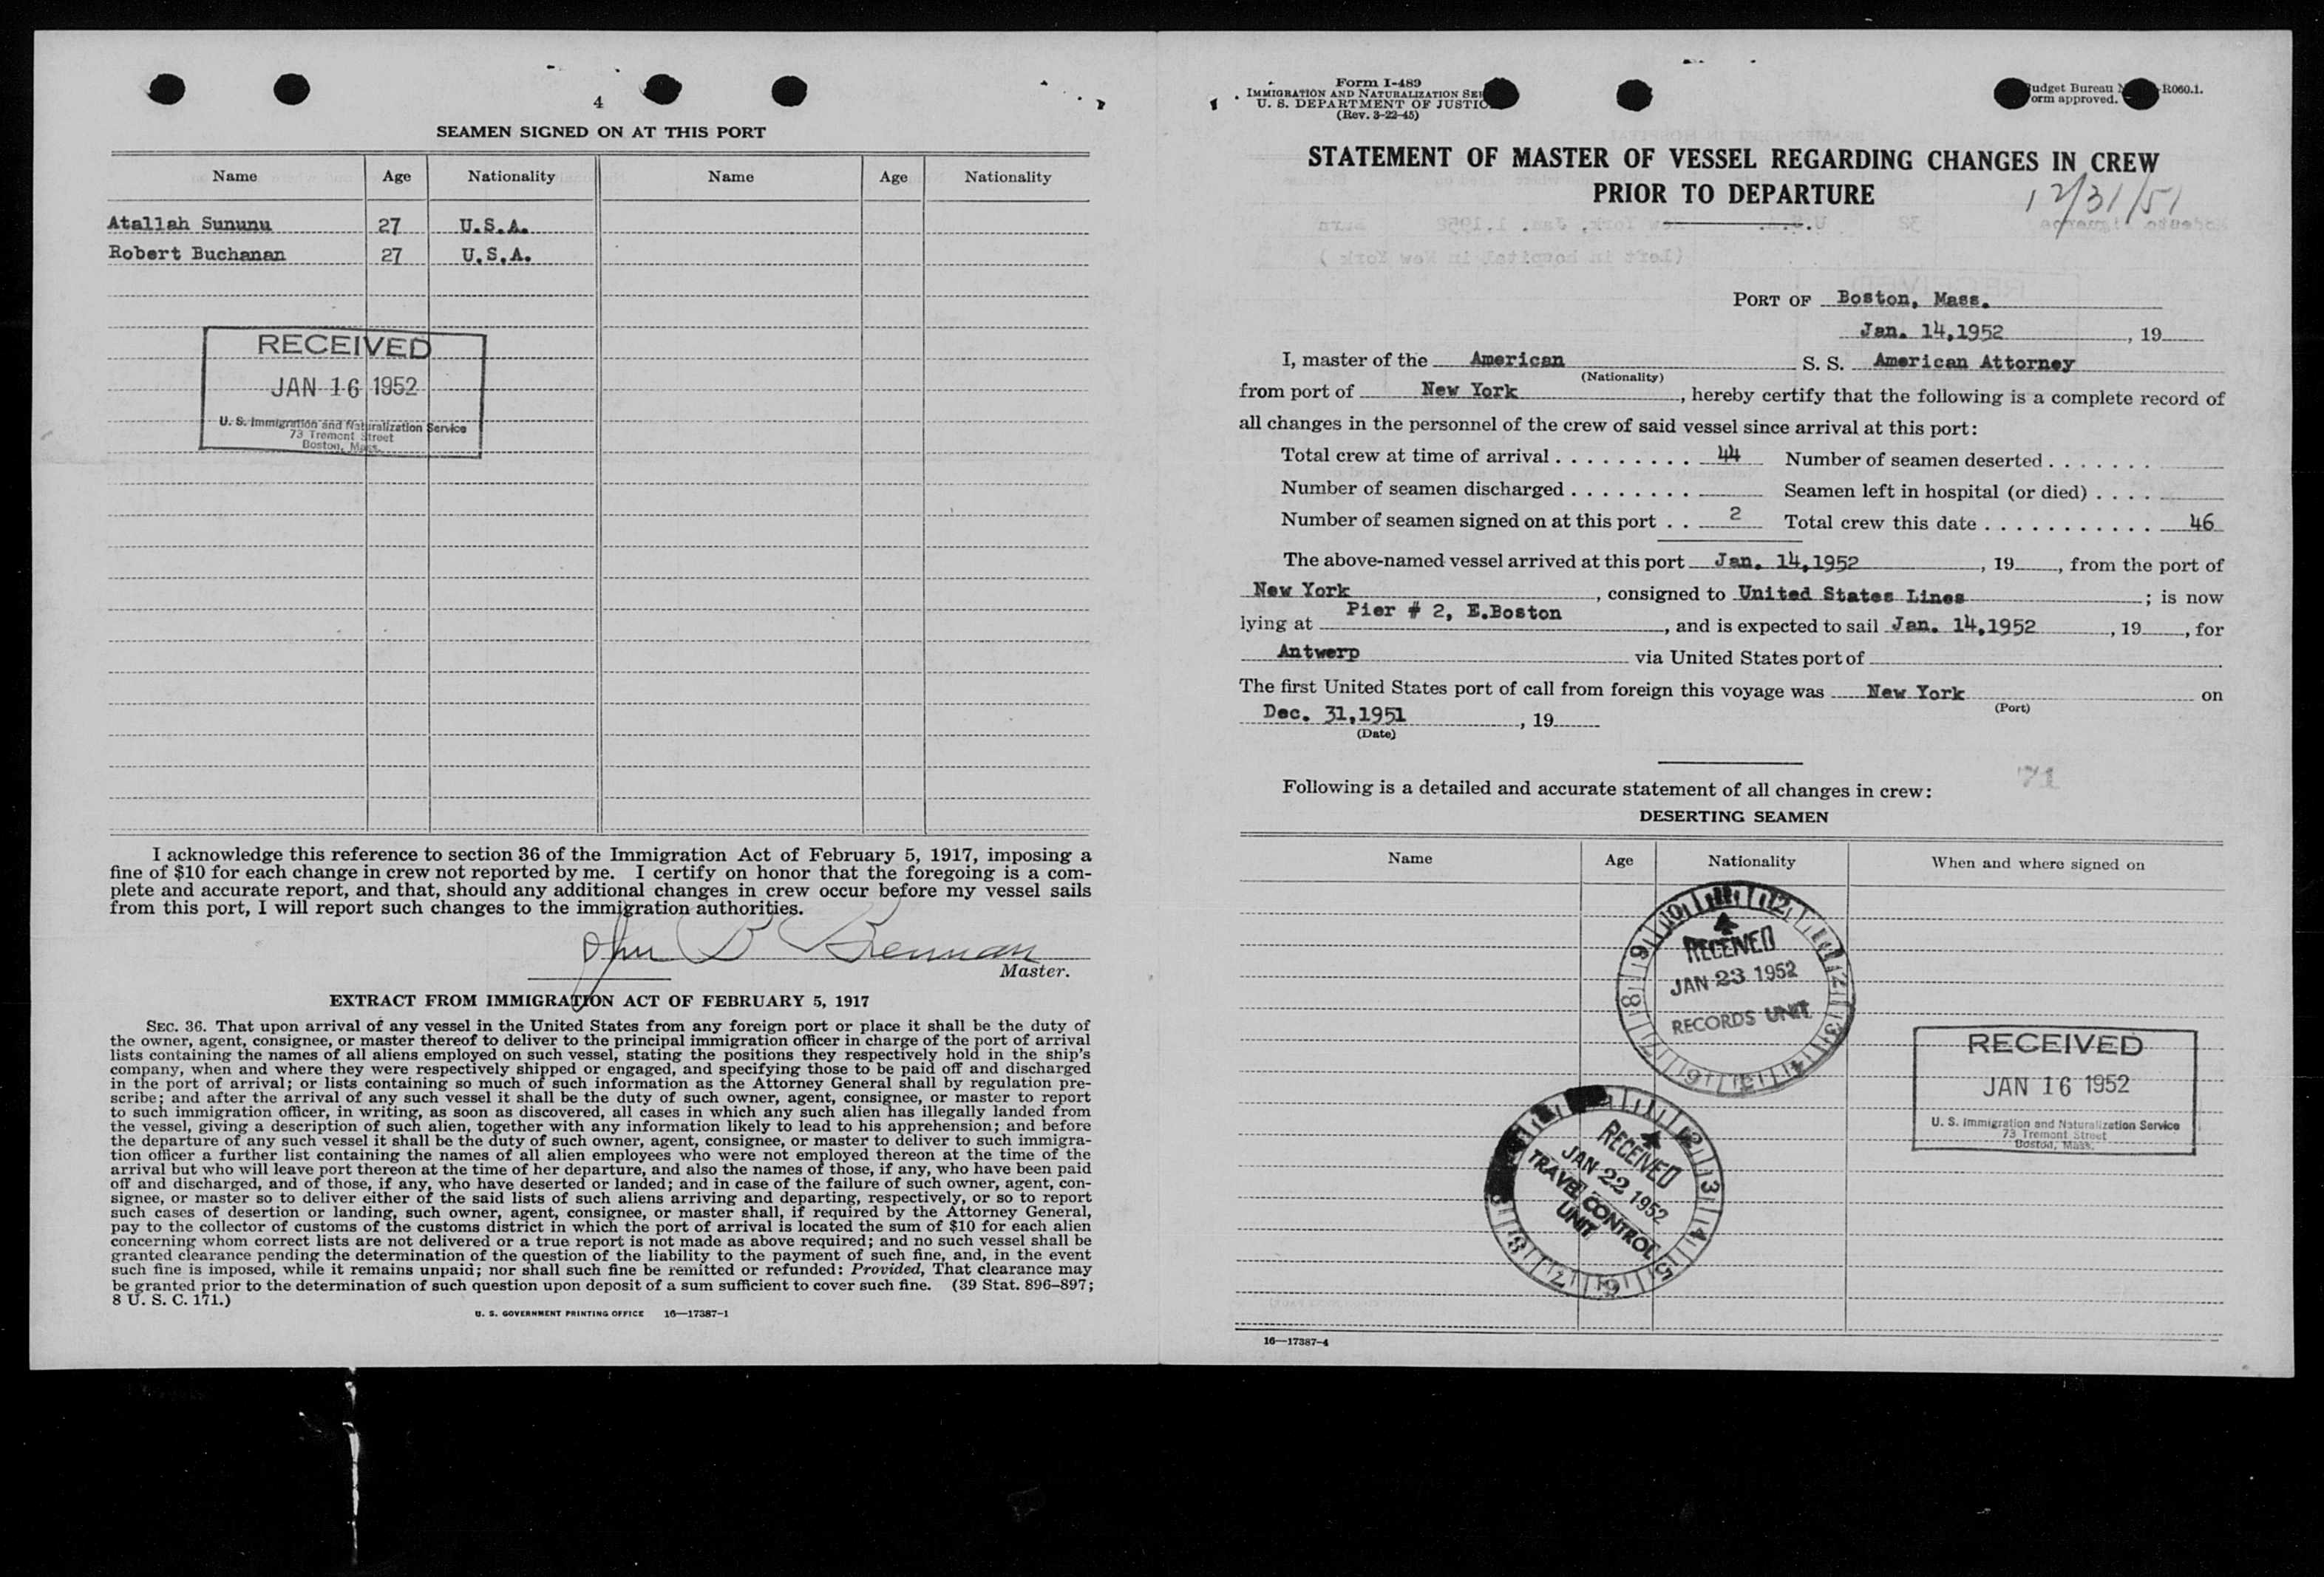 4
SEAMEN SIGNED ON AT THIS PORT
Name Age Nationality Name Age Nationality
Atallah Sununu 27 U.S.A.
Robert Buchanan 27 U.S.A.
RECEIVED
JAN 16 1952
U. S. Immigration and Naturalization Service
73 Tremont Street
Boston, Mass.
I acknowledge this reference to section 36 of the Immigration Act of February 5, 1917, imposing a
fine of $10 for each change in crew not reported by me. I certify on honor that the foregoing is a com-
plete and accurate report, and that, should any additional changes in crew occur before my vessel sails
from this port, I will report such changes to the immigration authorities.
John B Brennan
Master.
EXTRACT FROM IMMIGRATION ACT OF FEBRUARY 5, 1917
SEC. 36. That upon arrival of any vessel in the United States from any foreign port or place it shall be the duty of
the owner, agent, consignee, or master thereof to deliver to the principal immigration officer in charge of the port of arrival
lists containing the names of all aliens employed on such vessel, stating the positions they respectively hold in the ship's
company, when and where they were respectively shipped or engaged, and specifying those to be paid off and discharged
in the port of arrival; or lists containing so much of such information as the Attorney General shall by regulation pre-
scribe; and after the arrival of any such vessel it shall be the duty of such owner, agent, consignee, or master to report
to such immigration officer, in writing, as soon as discovered, all cases in which any such alien has illegally landed from
the vessel, giving a description of such alien, together with any information likely to lead to his apprehension; and before
the departure of any such vessel it shall be the duty of such owner, agent, consignee, or master to deliver to such immigra-
tion officer a further list containing the names of all alien employees who were not employed thereon at the time of the
arrival but who will leave port thereon at the time of her departure, and also the names of those, if any, who have been paid
off and discharged, and of those, if any, who have deserted or landed; and in case of the failure of such owner, agent, con-
signee, or master so to deliver either of the said lists of such aliens arriving and departing, respectively, or so to report
such cases of desertion or landing, such owner, agent, consignee, or master shall, if required by the Attorney General,
pay to the collector of customs of the customs district in which the port of arrival is located the sum of $10 for each alien
concerning whom correct lists are not delivered or a true report is not made as above required; and no such vessel shall be
granted clearance pending the determination of the question of the liability to the payment of such fine, and, in the event
such fine is imposed, while it remains unpaid; nor shall such fine be remitted or refunded: Provided, That clearance may
be granted prior to the determination of such question upon deposit of a sum sufficient to cover such fine. (39 Stat. 896-897;
8 U. S. C. 171.)
U. S. GOVERNMENT PRINTING OFFICE 16—17387-1
Form I-489
IMMIGRATION AND NATURALIZATION SER
U. S. DEPARTMENT OF JUSTIC
(Rev. 3-22-45)
udget Bureau R060.1.
orm approved.
STATEMENT OF MASTER OF VESSEL REGARDING CHANGES IN CREW
PRIOR TO DEPARTURE
12/31/51
PORT OF Boston, Mass.
Jan. 14,1952, 19
I, master of the American S. S. American Attorney
(Nationality)
from port of New York, hereby certify that the following is a complete record of
all changes in the personnel of the crew of said vessel since arrival at this port:
Total crew at time of arrival . . . . . . . . . . 44 Number of seamen deserted . . . . . . .
Number of seamen discharged . . . . . . . . Seamen left in hospital (or died) . . . .
Number of seamen signed on at this port . . 2 Total crew this date . . . . . . . . . . . 46
The above-named vessel arrived at this port Jan. 14,1952, 19, from the port of
New York, consigned to United States Lines; is now
lying at Pier # 2, E.Boston, and is expected to sail Jan. 14,1952, 19, for
Antwerp via United States port of .
The first United States port of call from foreign this voyage was New York on
(Port)
Dec. 31,1951, 19
(Date)
71
Following is a detailed and accurate statement of all changes in crew:
DESERTING SEAMEN
Name Age Nationality When and where signed on
RECEIVED
JAN 23 1952
RECORDS UNIT
RECEIVED
JAN 16 1952
U. S. Immigration and Naturalization Service
73 Tremont Street
Boston, Mass.
RECEIVED
JAN 22 1952
TRAVEL CONTROL
UNIT
16—17387-4